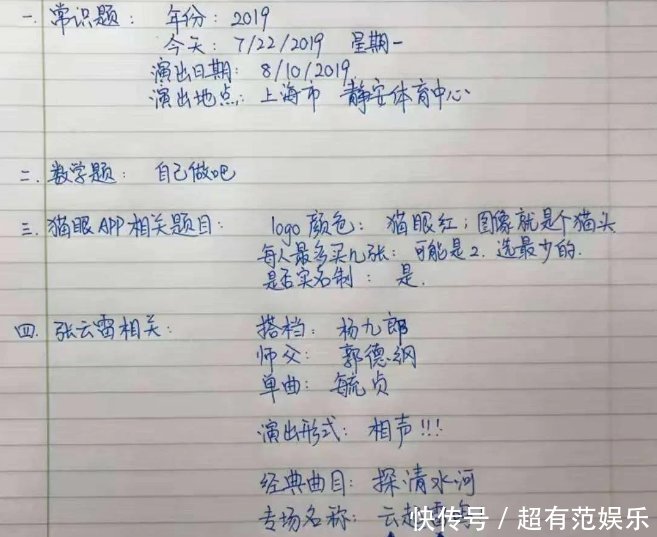 一. 常识题: 年份: 2019
今天: 7/22/2019 星期一
演出日期: 8/10/2019
演出地点: 上海市 静安体育中心
二. 数学题: 自己做吧
三. 猫眼APP相关题目: logo颜色: 猫眼红; 图像就是个猫头
每人最多买几张: 可能是2. 选最少的.
是否实名制: 是.
四. 张云雷相关: 搭档: 杨九郎
师父: 郭德纲
单曲: 毓贞
演出形式: 相声!!!
经典曲目: 探清水河
专场名称: 云
快传号 / 超有范娱乐